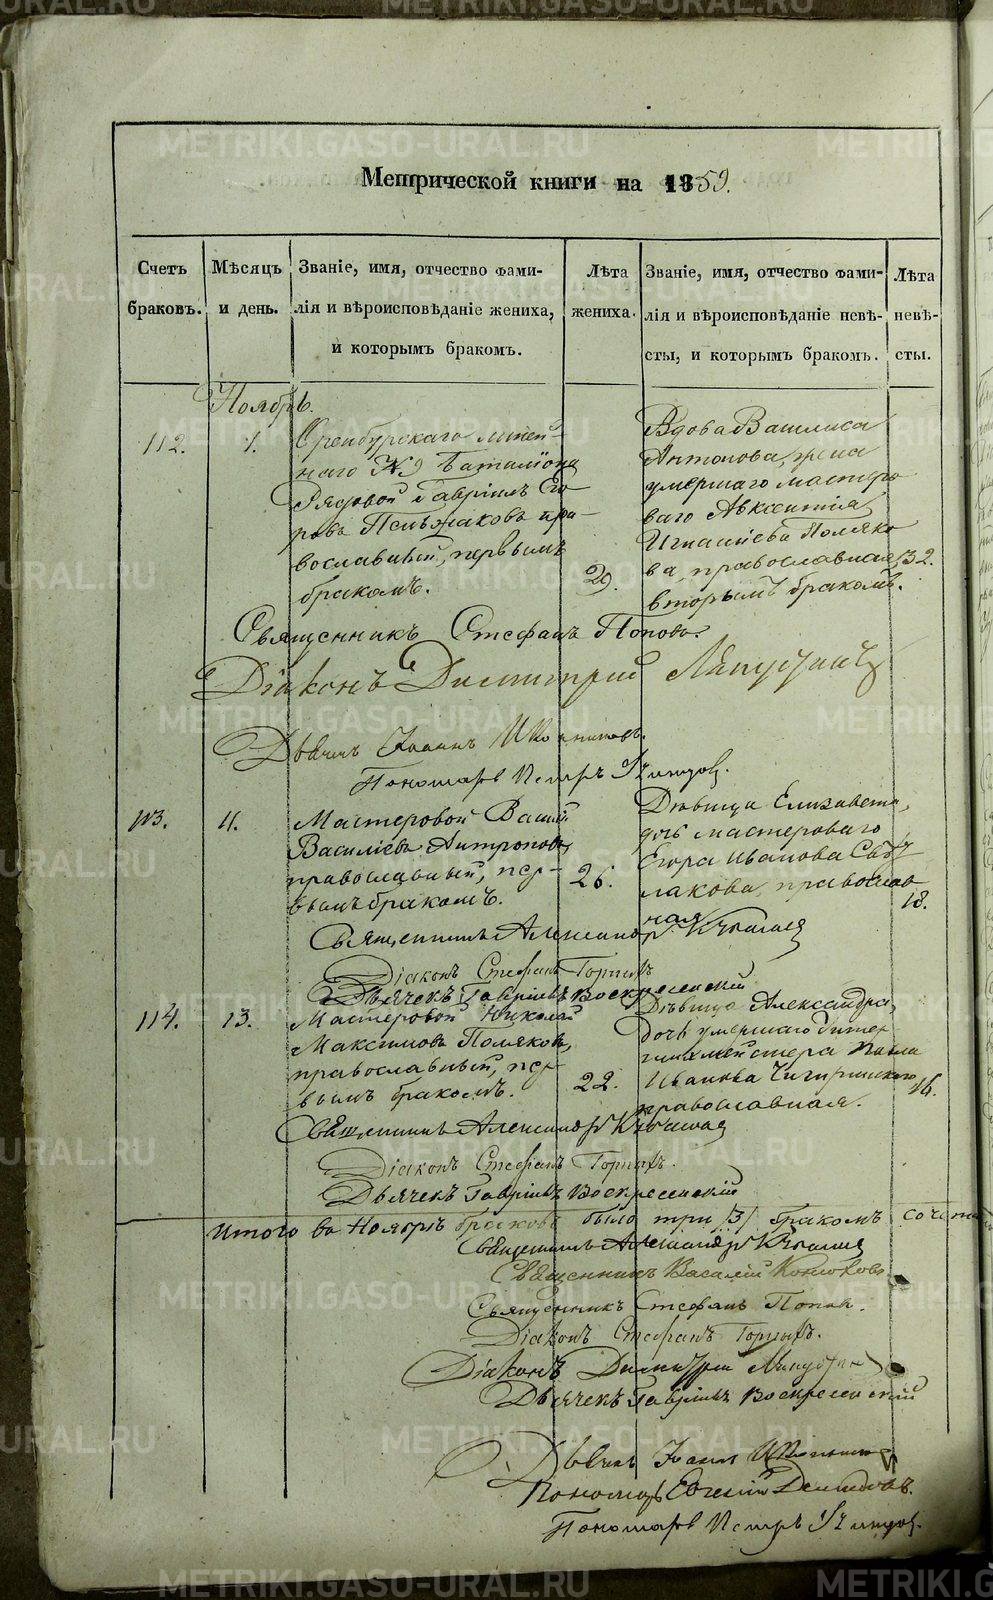 Метрической книги на 1859.
Счетъ браковъ.
Мѣсяцъ и день.
Званіе, имя, отчество фами-
лія и вѣроисповѣданіе жениха,
и которымъ бракомъ.
Лѣта жениха.
Званіе, имя, отчество фами-
лія и вѣроисповѣданіе невѣ-
сты, и которымъ бракомъ.
Лѣта невѣ-
сты.
Ноябрь.
112.
1.
Оренбурскаго линей-
наго № 9 Баталіона
Рядовой Гавріилъ Его
ровъ пра-
вославный, первымъ
бракомъ.
29.
Вдова Василиса
Антонова, жена
умершаго мастеро
ваго Авксентія
Игнатіева Поляко
ва, православная,
вторымъ бракомъ.
32.
Священникъ Стефанъ Поповъ.
Діаконъ Димитрий
Дьячекъ Іоаннъ
Пономарь Петръ
113.
11.
Мастеровой Васил
Василіевъ Антроповъ,
православный, пер-
вымъ бракомъ.
26.
Дѣвица Елизавета,
дочь мастероваго
Егора Иванова
лакова, православ
ная
18.
Священникъ Александръ
Діаконъ Стефанъ Горныхъ
Дьячекъ Гавріилъ Воскресенскій
114.
13.
Мастеровой Николай
Максимовъ Поляковъ,
православный, пер-
вымъ бракомъ.
22.
Дѣвица Александра,
дочь умершаго
Павла
Иванова Чигиринскаго
православная.
16.
Священникъ Александръ
Діаконъ Стефанъ Горныхъ.
Дьячекъ Гавріилъ Воскресенскій
Итого въ Ноябрѣ браковъ было три /3/ бракомъ
Священникъ Александръ
Священникъ Василій Конюховъ
Священникъ Стефанъ Поповъ.
Діаконъ Стефанъ Горныхъ.
Діаконъ Димитрій
Дьячекъ Гавріилъ Воскресенскій
Дьячекъ Іоаннъ
Пономарь Евгеній Демидовъ.
Пономарь Петръ
METRIKI.GASO-URAL.RU